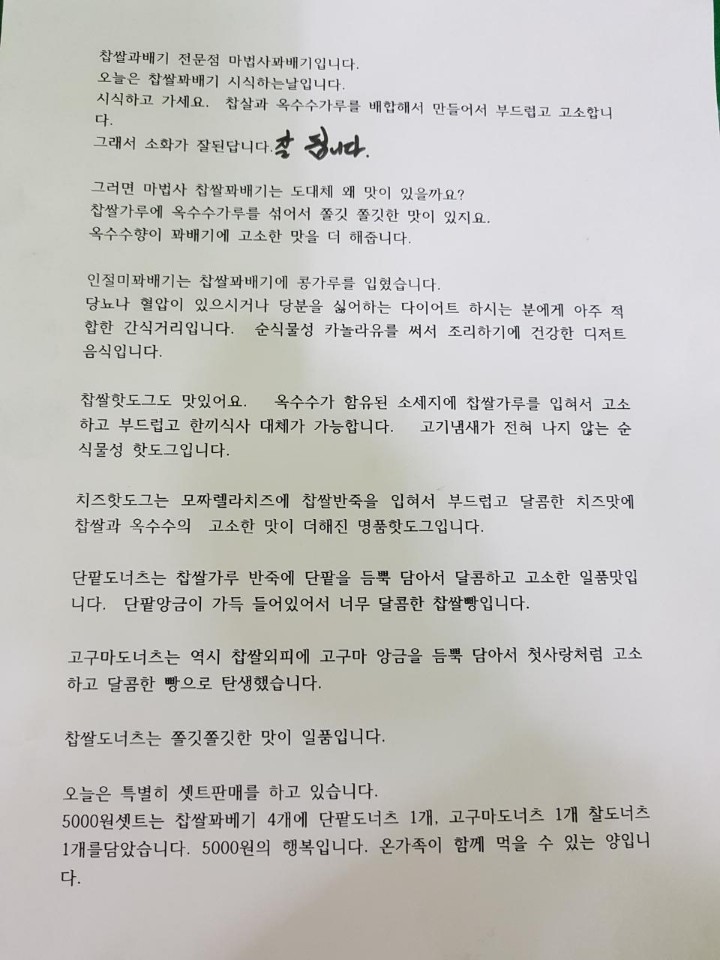 찹쌀과배기 전문점 마법사꽈배기입니다.
오늘은 찹쌀꽈배기 시식하는날입니다.
시식하고 가세요. 찹살과 옥수수가루를 배합해서 만들어서 부드럽고 고소합니
다.
그래서 소화가 잘된답니다. 잘 됩니다.
그러면 마법사 찹쌀꽈배기는 도대체 왜 맛이 있을까요?
찹쌀가루에 옥수수가루를 섞어서 쫄깃 쫄깃한 맛이 있지요.
옥수수향이 꽈배기에 고소한 맛을 더 해줍니다.
인절미꽈배기는 찹쌀꽈배기에 콩가루를 입혔습니다.
당뇨나 혈압이 있으시거나 당분을 싫어하는 다이어트 하시는 분에게 아주 적
합한 간식거리입니다. 순식물성 카놀라유를 써서 조리하기에 건강한 디저트
음식입니다.
찹쌀핫도그도 맛있어요. 옥수수가 함유된 소세지에 찹쌀가루를 입혀서 고소
하고 부드럽고 한끼식사 대체가 가능합니다. 고기냄새가 전혀 나지 않는 순
식물성 핫도그입니다.
치즈핫도그는 모짜렐라치즈에 찹쌀반죽을 입혀서 부드럽고 달콤한 치즈맛에
찹쌀과 옥수수의 고소한 맛이 더해진 명품핫도그입니다.
단팥도너츠는 찹쌀가루 반죽에 단팥을 듬뿍 담아서 달콤하고 고소한 일품맛입
니다. 단팥앙금이 가득 들어있어서 너무 달콤한 찹쌀빵입니다.
고구마도너츠는 역시 찹쌀외피에 고구마 앙금을 듬뿍 담아서 첫사랑처럼 고소
하고 달콤한 빵으로 탄생했습니다.
찹쌀도너츠는 쫄깃쫄깃한 맛이 일품입니다.
오늘은 특별히 셋트판매를 하고 있습니다.
5000원셋트는 찹쌀꽈베기 4개에 단팥도너츠 1개, 고구마도너츠 1개 찰도너츠
1개를담았습니다. 5000원의 행복입니다. 온가족이 함께 먹을 수 있는 양입니
다.